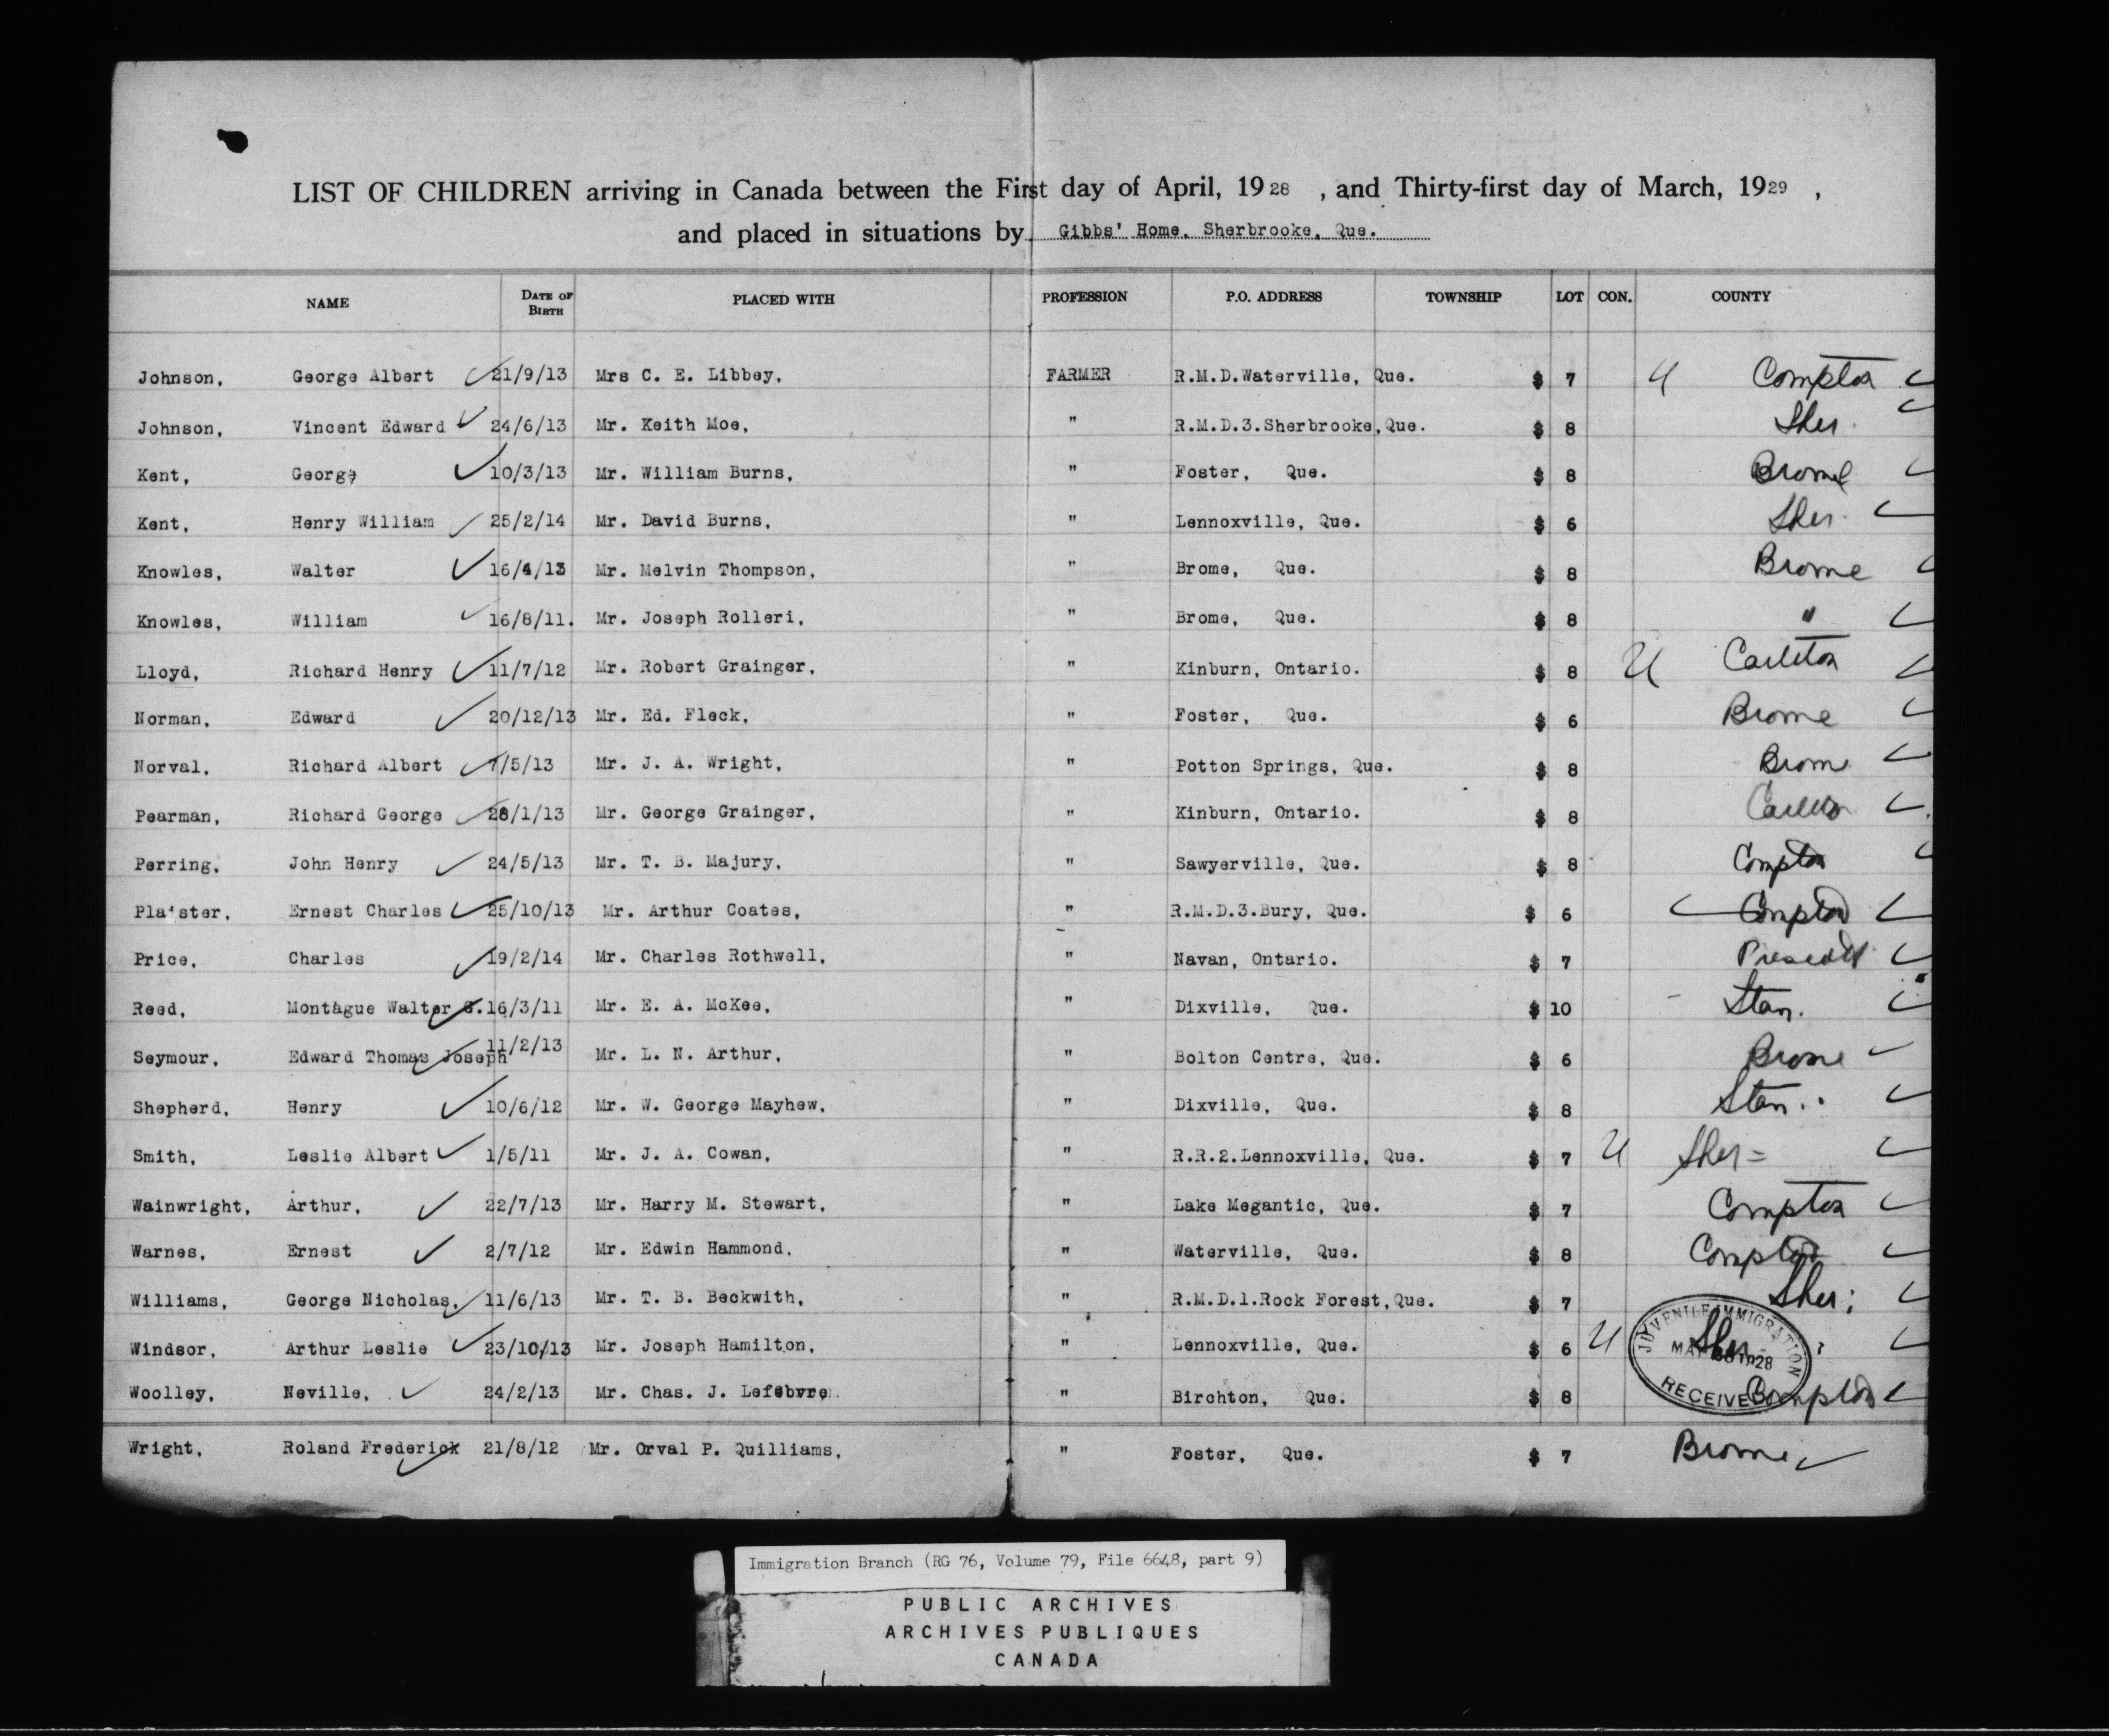 LIST OF CHILDREN arriving in Canada between the First day of April, 1928 , and Thirty-first day of March, 1929 ,
and placed in situations by Gibbs' Home, Sherbrooke, Que.
NAME DATE OF BIRTH PLACED WITH PROFESSION P.O. ADDRESS TOWNSHIP LOT CON. COUNTY
Johnson, George Albert 21/9/13 Mrs C. E. Libbey, FARMER R.M.D.Waterville, Que. $ 7 U Compton
Johnson, Vincent Edward 24/6/13 Mr. Keith Moe, " R.M.D.3.Sherbrooke,Que. $ 8 Sher.
Kent, George 10/3/13 Mr. William Burns, " Foster, Que. $ 8 Brome
Kent, Henry William 25/2/14 Mr. David Burns, " Lennoxville, Que. $ 6 Sher.
Knowles, Walter 16/4/13 Mr. Melvin Thompson, " Brome, Que. $ 8 Brome
Knowles, William 16/8/11. Mr. Joseph Rolleri, " Brome, Que. $ 8 "
Lloyd, Richard Henry 11/7/12 Mr. Robert Grainger, " Kinburn, Ontario. $ 8 U Carleton
Norman, Edward 20/12/13 Mr. Ed. Fleck, " Foster, Que. $ 6 Brome
Norval, Richard Albert 7/5/13 Mr. J. A. Wright, " Potton Springs, Que. $ 8 Brome
Pearman, Richard George 28/1/13 Mr. George Grainger, " Kinburn, Ontario. $ 8 Carleton
Perring, John Henry 24/5/13 Mr. T. B. Majury, " Sawyerville, Que. $ 8 Compton
Plaister, Ernest Charles 25/10/13 Mr. Arthur Coates, " R.M.D.3.Bury, Que. $ 6 Compton
Price, Charles 19/2/14 Mr. Charles Rothwell, " Navan, Ontario. $ 7 Prescott
Reed, Montague Walter 16/3/11 Mr. E. A. McKee, " Dixville, Que. $ 10 Stan.
Seymour, Edward Thomas Joseph 11/2/13 Mr. L. N. Arthur, " Bolton Centre, Que. $ 6 Brome
Shepherd, Henry 10/6/12 Mr. W. George Mayhew, " Dixville, Que. $ 8 Stan.
Smith, Leslie Albert 1/5/11 Mr. J. A. Cowan, " R.R.2.Lennoxville, Que. $ 7 U Sher
Wainwright, Arthur, 22/7/13 Mr. Harry M. Stewart, " Lake Megantic, Que. $ 7 Compton
Warnes, Ernest 2/7/12 Mr. Edwin Hammond, " Waterville, Que. $ 8 Compton
Williams, George Nicholas, 11/6/13 Mr. T. B. Beckwith, " R.M.D.1.Rock Forest,Que. $ 7 Sher;
Windsor, Arthur Leslie 23/10/13 Mr. Joseph Hamilton, " Lennoxville, Que. $ 6 U Sher
JUVENILE IMMIGRATION
1928
RECEIVED
Woolley, Neville, 24/2/13 Mr. Chas. J. Lefebvre. " Birchton, Que. $ 8 Compton
Wright, Roland Frederick 21/8/12 Mr. Orval P. Quilliams, " Foster, Que. $ 7 Brome
Immigration Branch (RG 76, Volume 79, File 6648, part 9)
PUBLIC ARCHIVES
ARCHIVES PUBLIQUES
CANADA